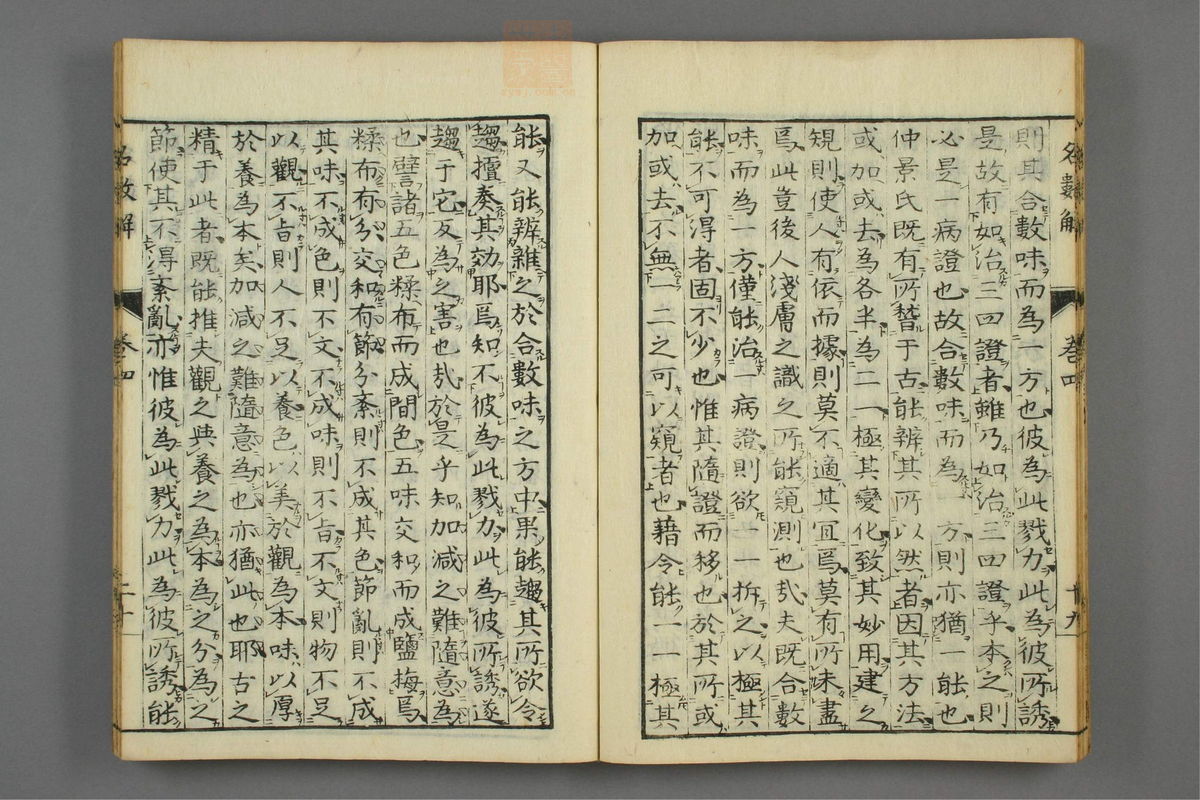 則其合數味而為一方也彼為此戮力此為彼所誘
是故有如治三四證者雖乃如治三四證乎本之則
必是一病證也故合數味而為一方則亦猶一能也
仲景氏既有所稽于古能辨其所以然者因其方法
或加或去為各半為二一極其變化致其妙用建之
規則使人有依而據則莫不適其冝焉莫有所未盡
焉此豈後人淺膚之識之所能窺測也哉夫既合數
味而為一方僅能治一病證則欲一一拆之以極其
能不可得者固不少也惟其隨證而移也於其所或
加或去不無一二之可以窺者也藉令能一一極其
名數解 卷四 十九
能又能辨雜之於合數味之方中果能趨其所欲令
趨擅奏其効耶焉知不彼為此戮力此為彼所誘遂
趨于它反為之害也哉於是乎知加減之難隨意為
也譬諸五色糅布而成間色五味交和而成鹽梅焉
糅布有分交和有節分紊則不成其色節亂則不成
其味不成色則不文不成味則不旨不文則物不足
以觀不旨則人不足以養色以美於觀為本味以厚
於養為本矣加減之難隨意為也亦猶此也耶古之
精于此者既能推夫觀之與養之為本之分為之
節使其不得紊亂亦惟彼為此戮力此為彼所誘能
名數解 卷四 二十